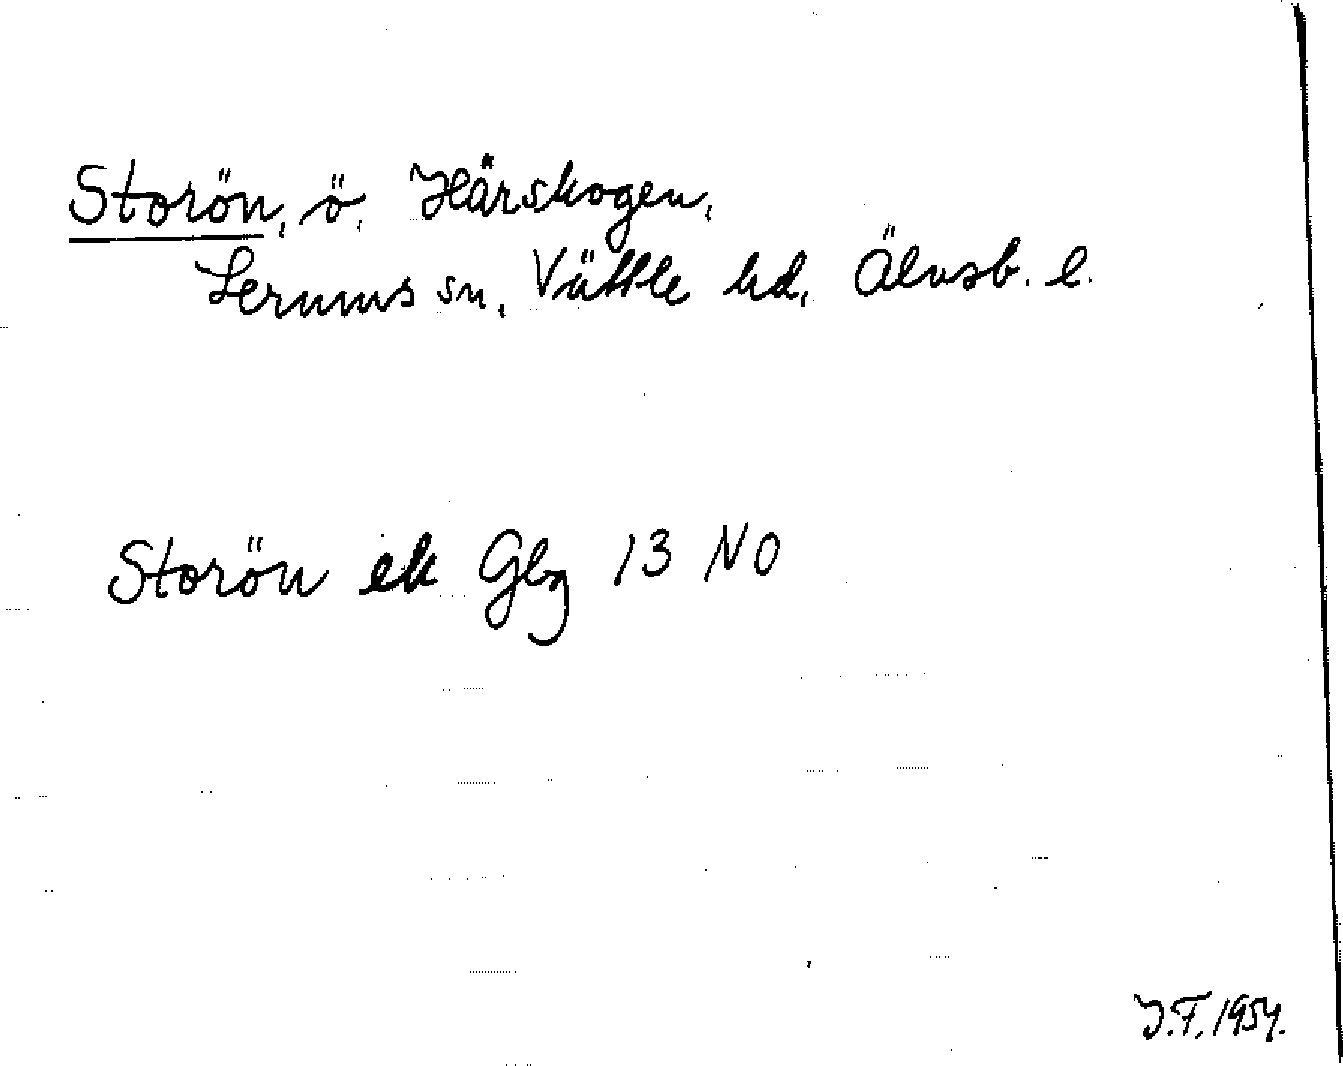 Storön, ö, Härskogen,
Lerums sn, Vättle hd, Älvsb. l.
Storön ek Gbg 13 NO
J.F. 1954.